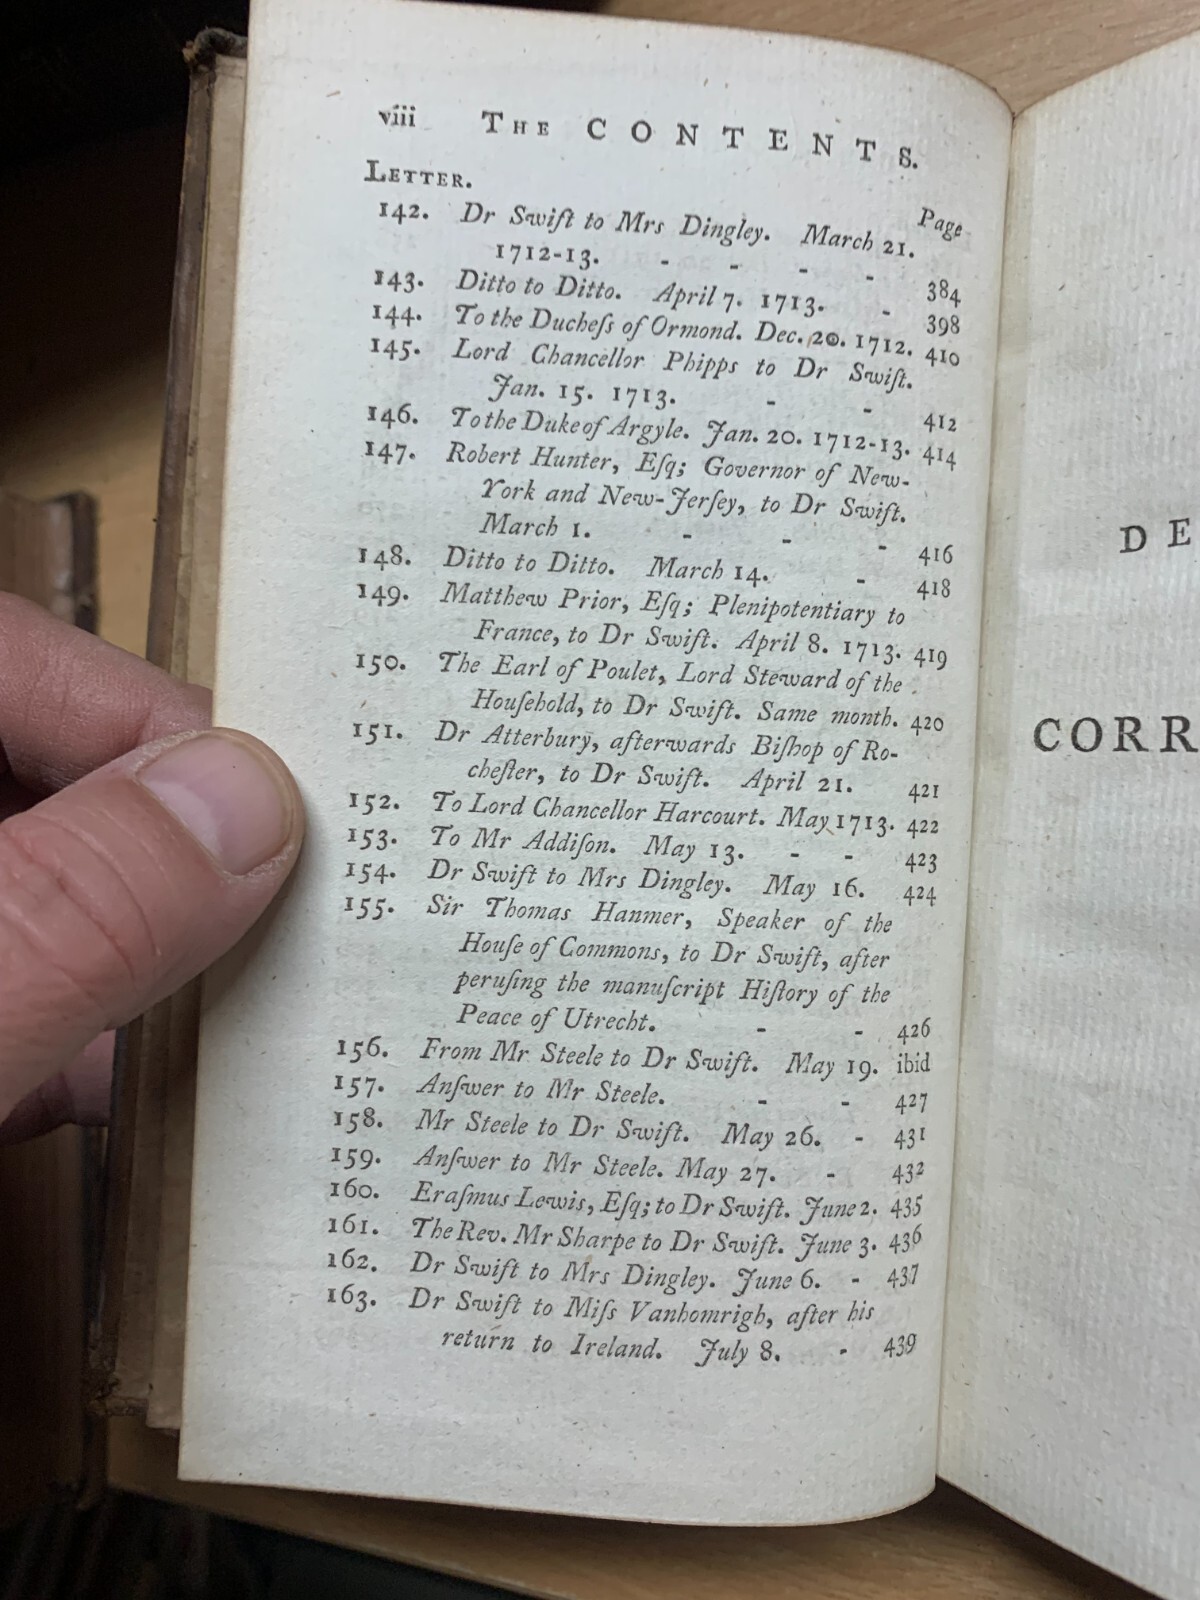 viii THE CONTENTS.
LETTER.
Page
142. Dr Swiſt to Mrs Dingley. March 21.
1712-13. - - - - 384
143. Ditto to Ditto. April 7. 1713. - 398
144. To the Ducheſs of Ormond. Dec. 20. 1712. 410
145. Lord Chancellor Phipps to Dr Swiſt.
Jan. 15. 1713. - - 412
146. To the Duke of Argyle. Jan. 20. 1712-13. 414
147. Robert Hunter, Eſq; Governor of New-
York and New-Jerſey, to Dr Swiſt.
March 1. - - - 416
148. Ditto to Ditto. March 14. - 418
149. Matthew Prior, Eſq; Plenipotentiary to
France, to Dr Swiſt. April 8. 1713. 419
150. The Earl of Poulet, Lord Steward of the
Houſehold, to Dr Swiſt. Same month. 420
151. Dr Atterbury, afterwards Biſhop of Ro-
cheſter, to Dr Swiſt. April 21. 421
152. To Lord Chancellor Harcourt. May 1713. 422
153. To Mr Addiſon. May 13. - - 423
154. Dr Swiſt to Mrs Dingley. May 16. 424
155. Sir Thomas Hanmer, Speaker of the
Houſe of Commons, to Dr Swiſt, after
peruſing the manuſcript Hiſtory of the
Peace of Utrecht. - - 426
156. From Mr Steele to Dr Swiſt. May 19. ibid
157. Anſwer to Mr Steele. - - 427
158. Mr Steele to Dr Swiſt. May 26. - 431
159. Anſwer to Mr Steele. May 27. - 432
160. Eraſmus Lewis, Eſq; to Dr Swiſt. June 2. 435
161. The Rev. Mr Sharpe to Dr Swiſt. June 3. 436
162. Dr Swiſt to Mrs Dingley. June 6. - 437
163. Dr Swiſt to Miſs Vanhomrigh, after his
return to Ireland. July 8. - 439
DE
CORR